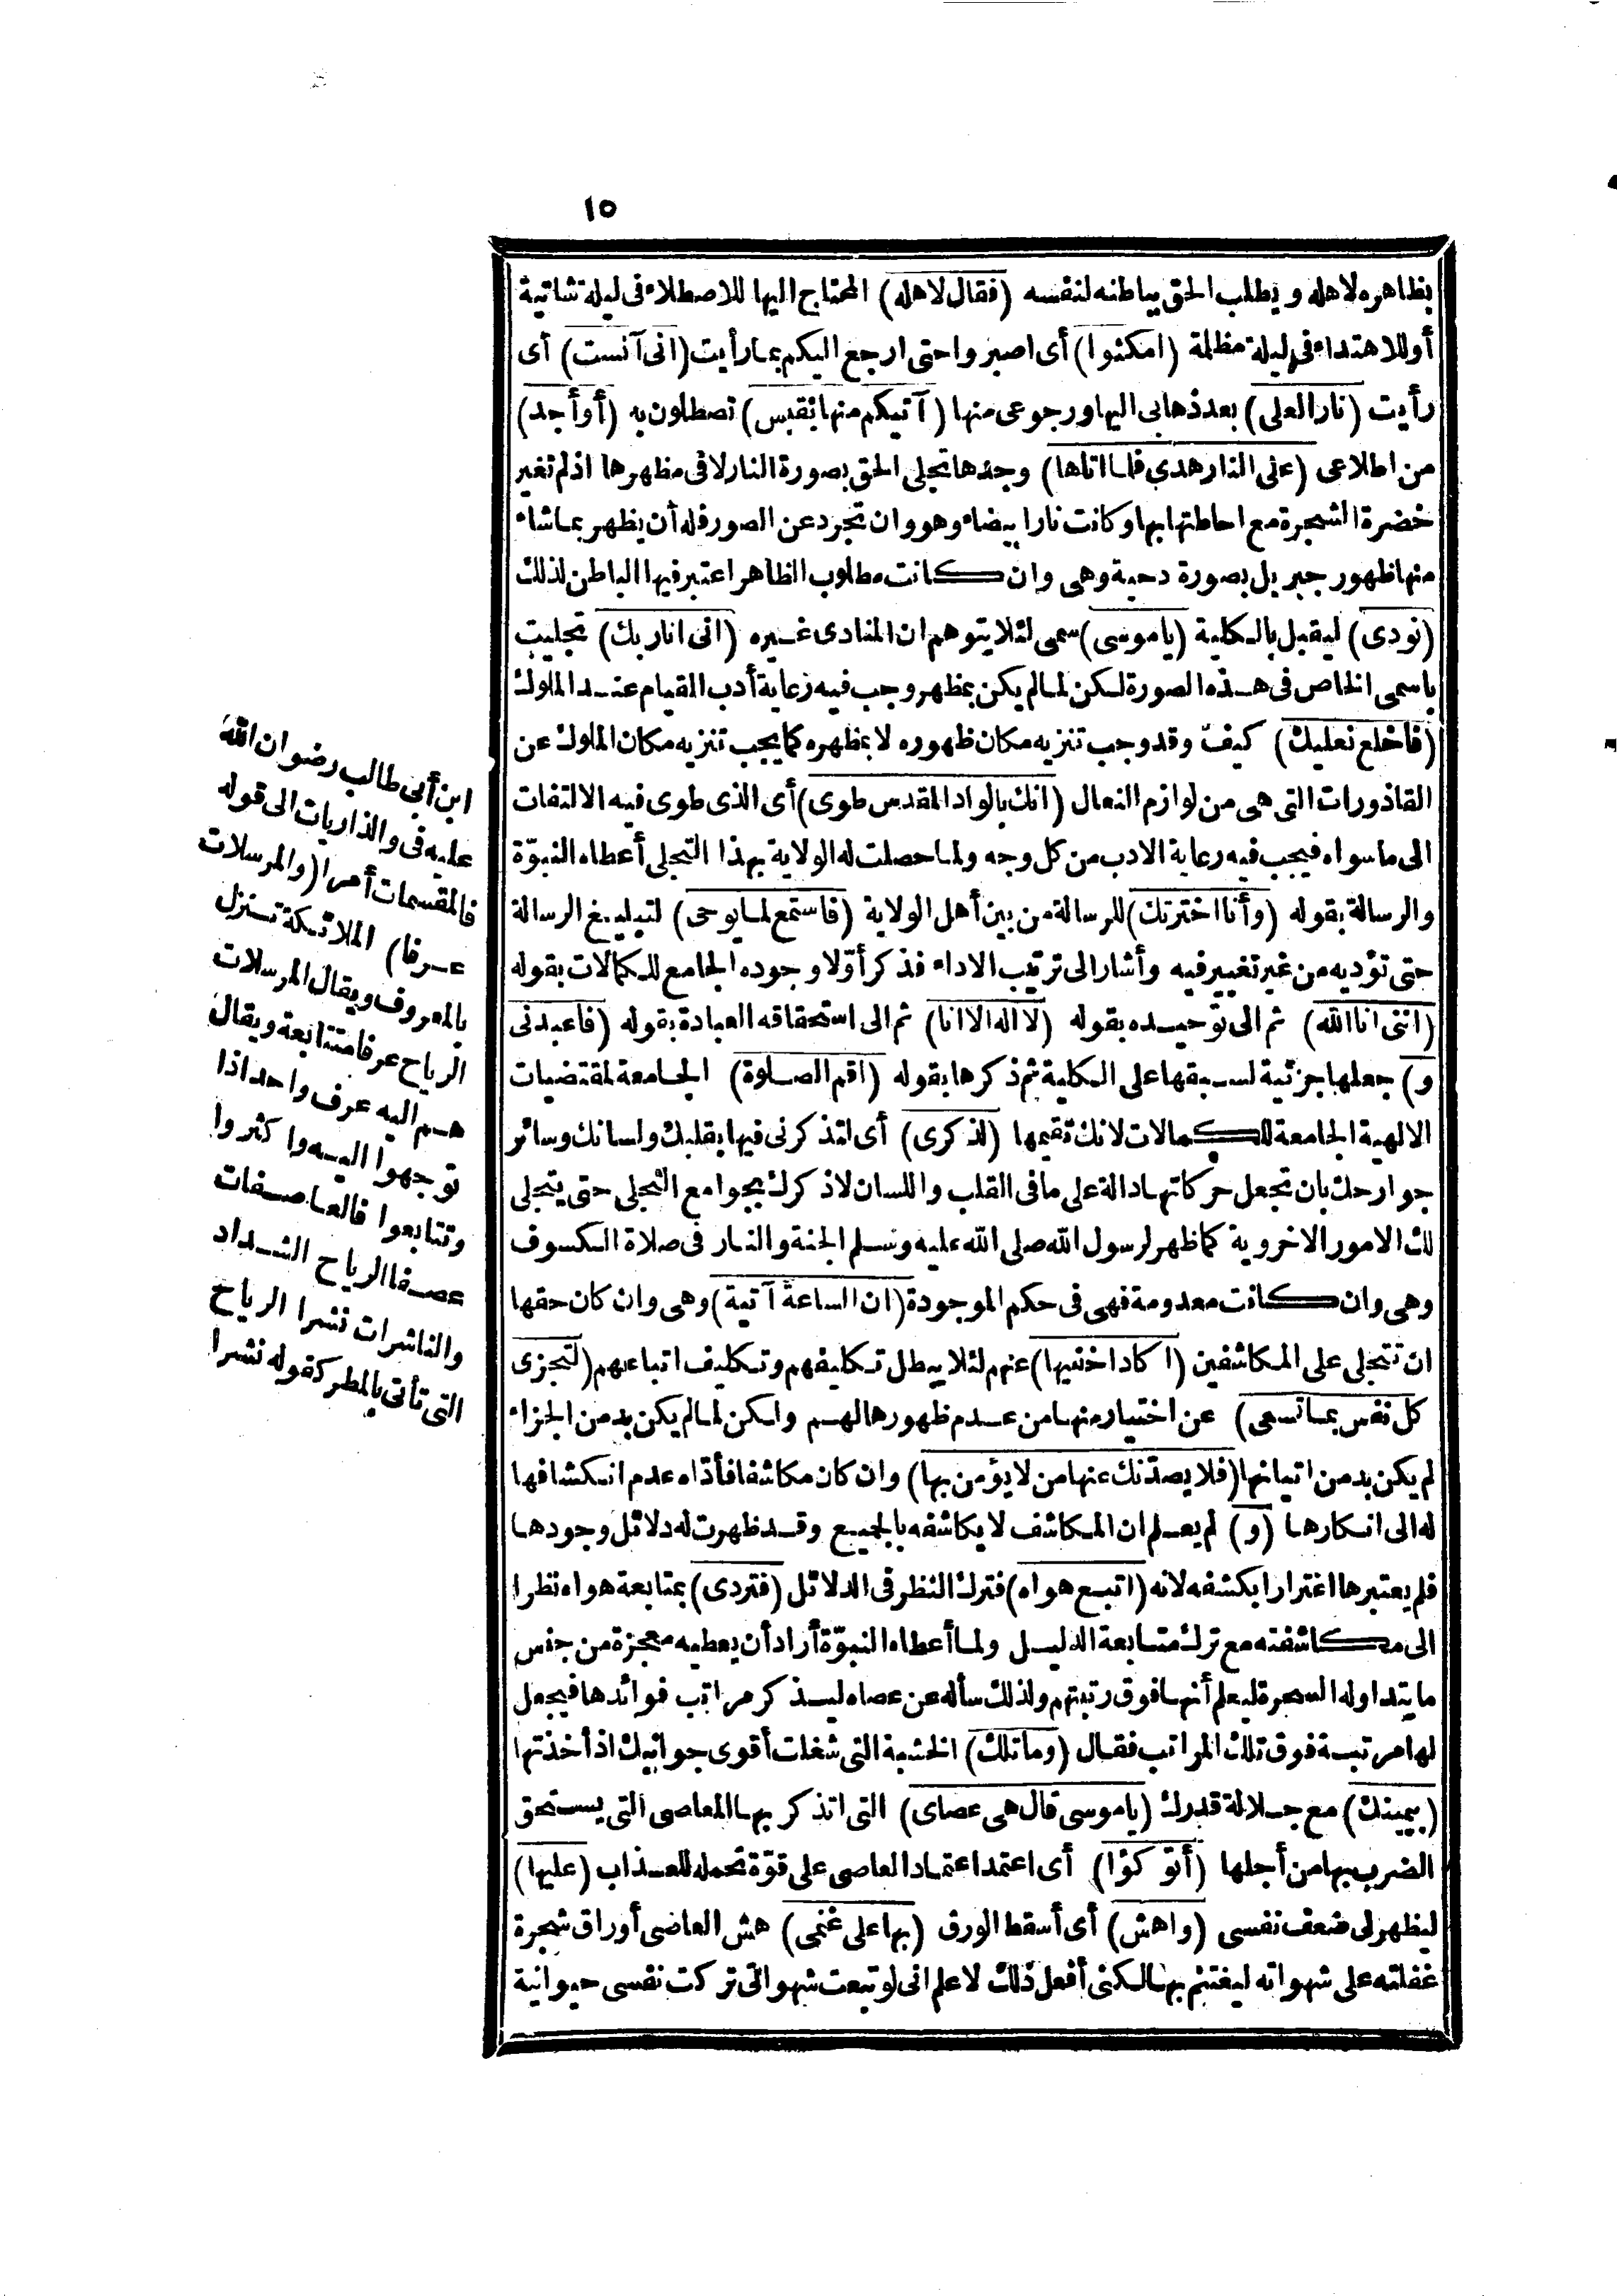 ١٥
بظاهره لاهله ويطلب الحق بباطنه لنفسه (فقال لاهله) المحتاج اليها للاصطلاء فى ليلة شاتية
أوللاهتداء فى ليلة مظلمة (امكثوا) أى اصبروا حتى ارجع اليكم بمارأيت (انى آنست) أى
رأيت (نارا لعلى) بعد ذهابى اليها ورجوعى منها (آتيكم منها بقبس) تصطلون به (أوأجد)
من اطلاعى (على النار هدى فلما اتاها) وجدها تجلى الحق بصورة النار لا فى مظهرها اذ لم تغير
خضرة الشجرة مع احاطتها بها وكانت نارا بيضاء وهو وان تجرد عن الصور فله أن يظهر بماشاء
منها ظهور جبريل بصورة دحية وهى وان كانت مطلوب الظاهر اعتبر فيها الباطن لذلك
(نودى) ليقبل بالكلية (ياموسى) سمى لئلا يتوهم ان المنادى غيره (انى انا ربك) تجليت
باسمى الخاص فى هذه الصورة لكن لما لم يكن بمظهر وجب فيه رعاية أدب القيام عند الملوك
(فاخلع نعليك) كيف وقد وجب تنزيه مكان ظهوره لا بمظهره كما يجب تنزيه مكان الملوك عن
القاذورات التى هى من لوازم النعال (انك بالواد المقدس طوى) أى الذى طوى فيه الالتفات
الى ما سواه فيجب فيه رعاية الادب من كل وجه ولما حصلت له الولاية بهذا التجلى أعطاه النبوّة
والرسالة بقوله (وأنا اخترتك) للرسالة من بين أهل الولاية (فاستمع لما يوحى) لتبليغ الرسالة
حتى تؤديه من غير تغيير فيه وأشار الى ترتيب الاداء فذكر أوّلا وجوده الجامع للكمالات بقوله
(اننى انا الله) ثم الى توحيده بقوله (لا اله الا انا) ثم الى استحقاقه العبادة بقوله (فاعبدنى
و) جعلها جزئية لسبقها على الكلية ثم ذكرها بقوله (اقم الصلوة) الجامعة لمقتضيات
الالهية الجامعة للكمالات لانك تقيمها (لذكرى) أى لتذكرنى فيها بقلبك ولسانك وسائر
جوارحك بان تجعل حركاتها دالة على ما فى القلب واللسان لاذكرك بجوامع التجلى حتى يتجلى
لك الامور الاخروية كما ظهر لرسول الله صلى الله عليه وسلم الجنة والنار فى صلاة الكسوف
وهى وان كانت معدومة فهى فى حكم الموجودة (ان الساعة آتية) وهى وان كان حقها
ان تتجلى على المكاشفين (اكاد اخفيها) عنهم لئلا يبطل تكليفهم وتكليف اتباعهم (لتجزى
كل نفس بما تسعى) عن اختيار منها من عدم ظهورها لهم ولكن لما لم يكن بد من الجزاء
لم يكن بد من اتيانها (فلا يصدّنك عنها من لا يؤمن بها) وان كان مكاشفا فأدّاه عدم انكشافها
له الى انكارها (و) لم يعلم ان المكاشف لا يكاشفه بالجميع وقد ظهرت له دلائل وجودها
فلم يعتبرها اغترارا بكشفه لانه (اتبع هواه) فترك النظر فى الدلائل (فتردى) بمتابعة هواه نظرا
الى مكاشفته مع ترك متابعة الدليل ولما أعطاه النبوّة أراد أن يعطيه معجزة من جنس
ما يتداوله السحرة ليعلم أنها فوق رتبتهم ولذلك سأله عن عصاه ليذكر مراتب فوائدها فيجعل
لها مرتبة فوق تلك المراتب فقال (وما تلك) الخشبة التى شغلت أقوى جوانبك اذ أخذتها
(بيمينك) مع جلالة قدرك (ياموسى قال هى عصاى) التى اتذكر بها المعاصى التى يستحق
الضرب بها من أجلها (أتوكؤا) أى اعتمد اعتماد العاصى على قوّة تحمله للعذاب (عليها)
ليظهر لى ضعف نفسى (واهش) أى أسقط الورق (بها على غنمى) هش العاصى أوراق شجرة
غفلته على شهواته ليغتنم بها لكنى أفعل ذلك لاعلم انى لو تبعت شهواتى تركت نفسى حيوانية
ابن أبى طالب رضوان الله
عليه فى والذاريات الى قوله
فالمقسمات أمرا (والمرسلات
عرفا) الملائكة تنزل
بالمعروف ويقال المرسلات
الرياح عرفا متتابعة ويقال
هم اليه عرف واحد اذا
توجهوا اليه واكثروا
وتتابعوا فالعاصفات
عصفا الرياح الشداد
والناشرات نشرا الرياح
التى تأتى بالمطر كقوله نشرا